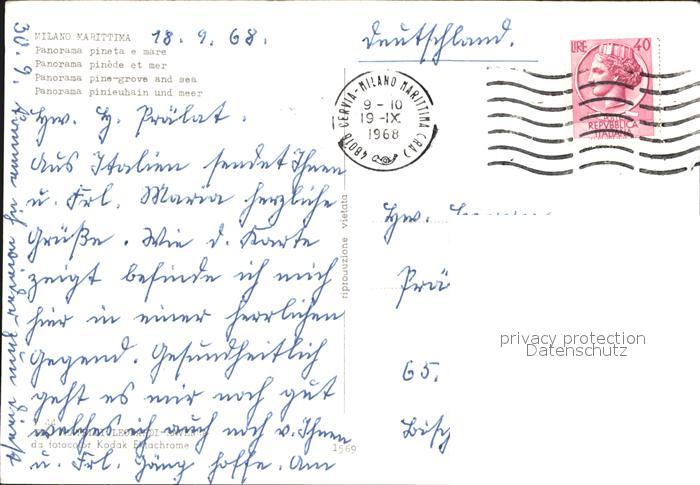 MILANO MARITTIMA 18. 9. 68.
Panorama pineta e mare
Panorama pinède et mer
Panorama pine-grove and sea
Panorama pinieuhain und meer
Hw. H. Prälat.
Aus Italien sendet Ihnen
u. Frl. Maria herzliche
Grüße. Wie d. Karte
zeigt befinde ich mich
hier in einer herrlichen
Gegend. Gesundheitlich
geht es mir noch gut
welches ich auch noch v. Ihnen
u. Frl. hoffe. Am
30. 9. komme ich wieder zum
da fotocolor Kodak Ektachrome
1569
riproduzione vietata
Deutschland.
48016 CERVIA-MILANO MARITTIMA (RA)
9-10
19-IX
1968
LIRE 40
REPVBBLICA
ITALIANA
Hw.
Prä
65.
Bisch
privacy protection
Datenschutz